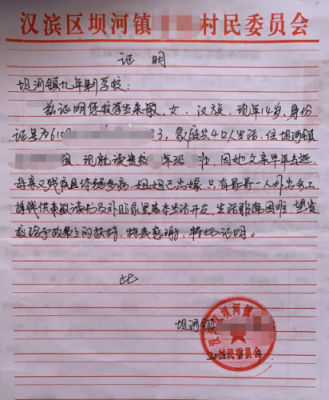 汉滨区坝河镇 村民委员会
证明
坝河镇九年制学校:
兹证明你校学生来敏,女,汉族,现年14岁,身份
证号码610 3,家庭共4口人生活,住坝河镇
,现就读贵校 年级 班,因她父亲早年去逝,
母亲又残疾且体弱多病,姐姐已出嫁,只有哥哥一人外出务工
挣钱供来敏读书及补贴家里基本生活开支,生活非常困难,望贵
校给予政策上的扶持,我表感谢,特此证明。
此
坝河镇
汉滨区坝河镇
村民委员会